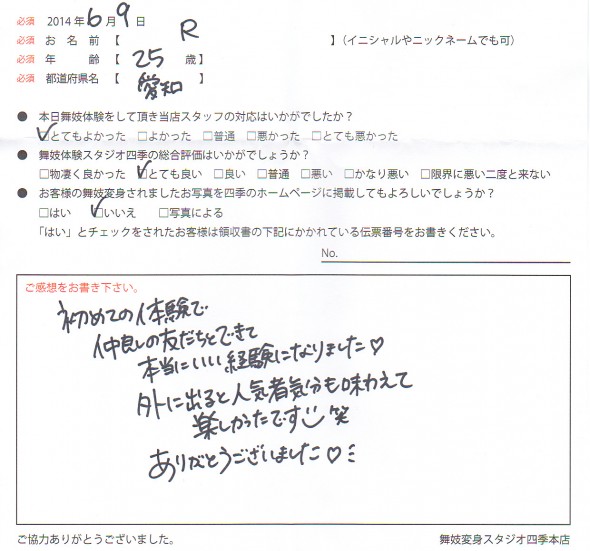 必須 2014年6月9日
必須 お名前【 R 】(イニシャルやニックネームでも可)
必須 年齢【 25 歳】
必須 都道府県名【 愛知 】
● 本日舞妓体験をして頂き当店スタッフの対応はいかがでしたか?
☑とてもよかった □よかった □普通 □悪かった □とても悪かった
● 舞妓体験スタジオ四季の総合評価はいかがでしょうか?
□物凄く良かった ☑とても良い □良い □普通 □悪い □かなり悪い □限界に悪い二度と来ない
● お客様の舞妓変身されましたお写真を四季のホームページに掲載してもよろしいでしょうか?
□はい ☑いいえ □写真による
「はい」とチェックをされたお客様は領収書の下記にかかれている伝票番号をお書きください。
No.
ご感想をお書き下さい。
初めての体験で
仲良しの友だちとできて
本当にいい経験になりました♡
外に出ると人気者気分も味わえて
楽しかったです☺笑
ありがとうございました♡
ご協力ありがとうございました。 舞妓変身スタジオ四季本店